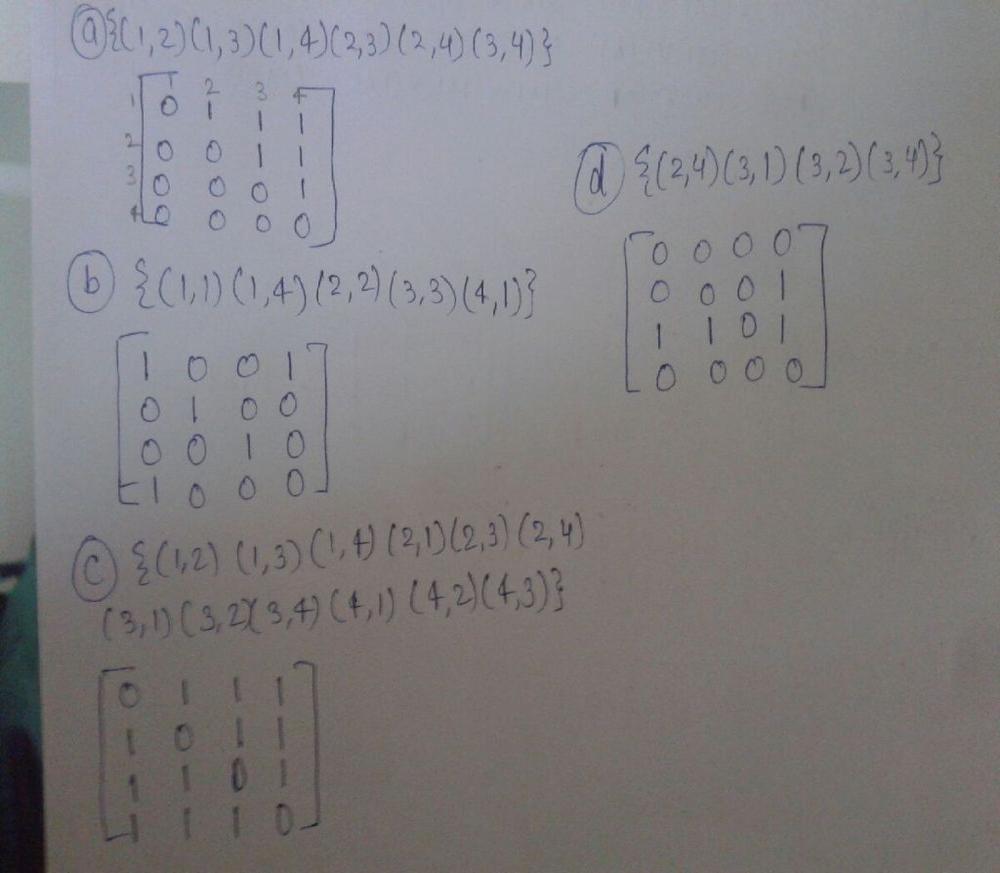 (a) {(1,2)(1,3)(1,4)(2,3)(2,4)(3,4)}
1 2 3 4
1 0 1 1 1
2 0 0 1 1
3 0 0 0 1
4 0 0 0 0
(b) {(1,1)(1,4)(2,2)(3,3)(4,1)}
1 0 0 1
0 1 0 0
0 0 1 0
1 0 0 0
(c) {(1,2) (1,3)(1,4)(2,1)(2,3)(2,4)
(3,1)(3,2)(3,4)(4,1)(4,2)(4,3)}
0 1 1 1
1 0 1 1
1 1 0 1
1 1 1 0
(d) {(2,4)(3,1)(3,2)(3,4)}
0 0 0 0
0 0 0 1
1 1 0 1
0 0 0 0